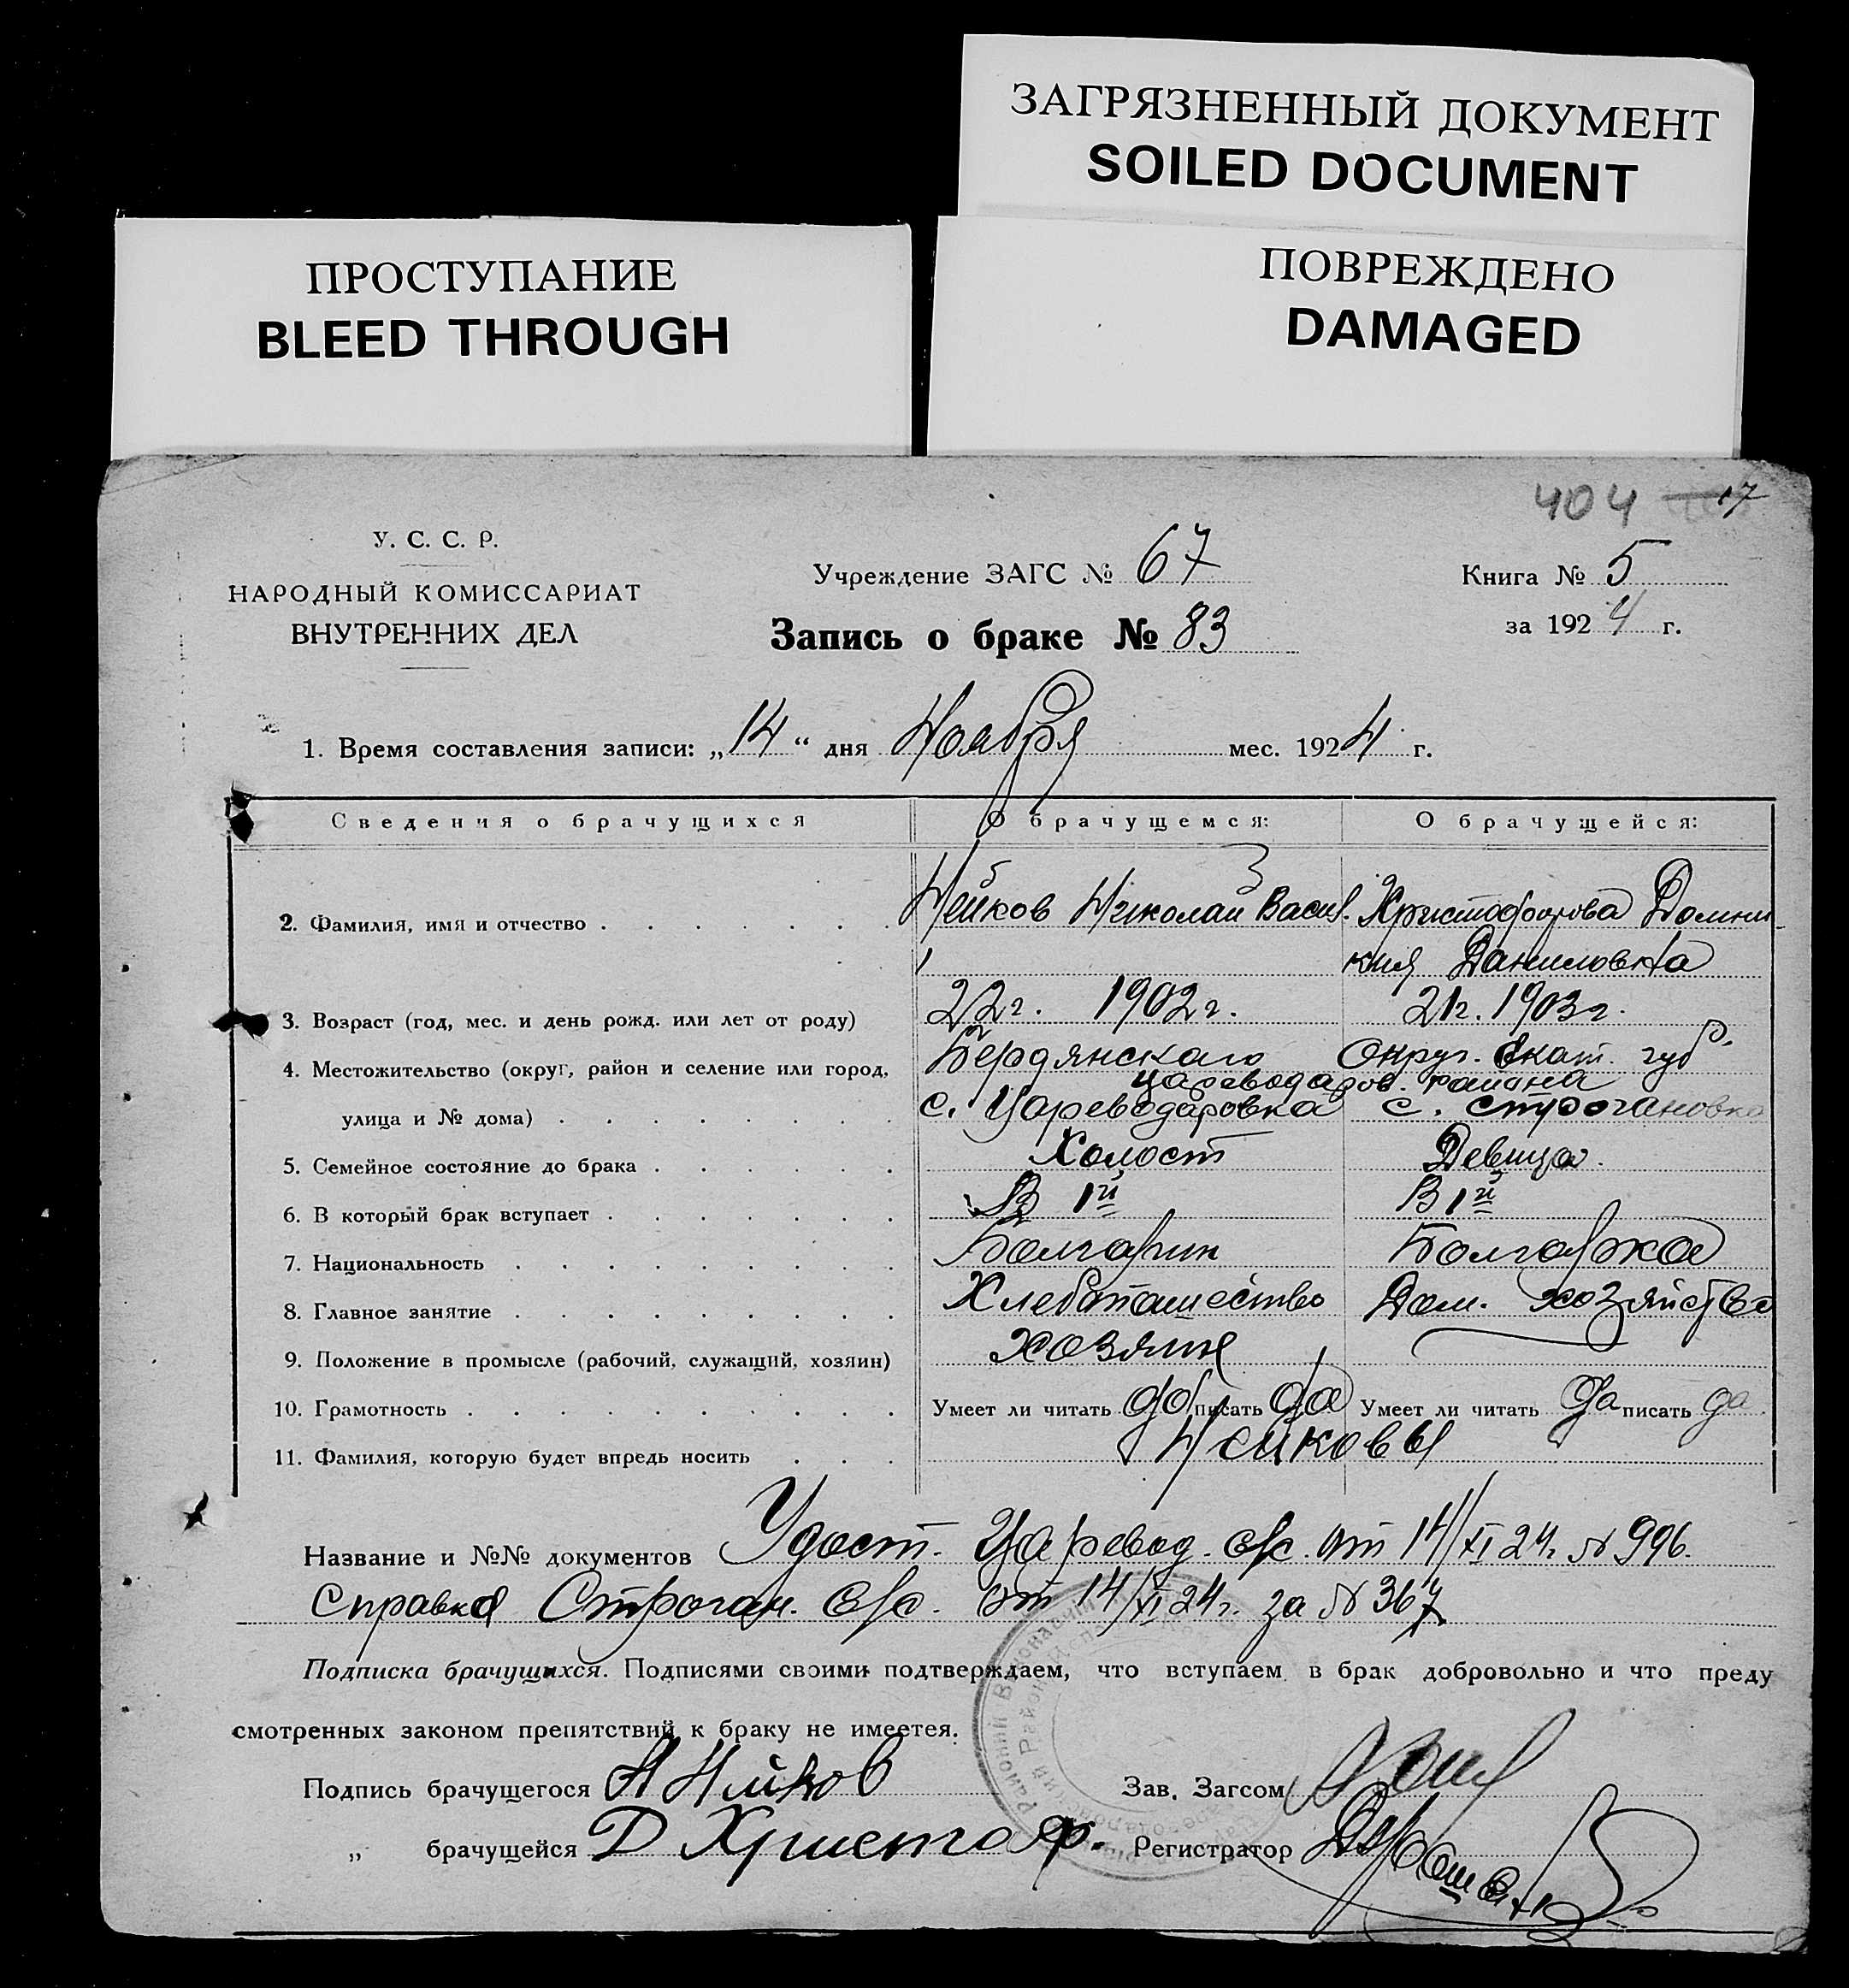 ЗАГРЯЗНЕННЫЙ ДОКУМЕНТ
SOILED DOCUMENT
ПРОСТУПАНИЕ
BLEED THROUGH
ПОВРЕЖДЕНО
DAMAGED
404
У. С. С. Р.
НАРОДНЫЙ КОМИССАРИАТ
ВНУТРЕННИХ ДЕЛ
Учреждение ЗАГС № 67
Книга № 5
Запись о браке № 83
за 1924 г.
1. Время составления записи: „14“ дня Ноября мес. 1924 г.
Сведения о брачущихся О брачущемся: О брачущейся:
2. Фамилия, имя и отчество Нейков Николай Васил. Христофорова Домни-
кия Даниловна
3. Возраст (год, мес. и день рожд. или лет от роду) 22 г. 1902 г. 21 г. 1903 г.
4. Местожительство (округ, район и селение или город, Бердянского Округ. Екат. губ.
Цареводаров. района
улица и № дома) с. Цареводаровка с. Строгановка
5. Семейное состояние до брака Холост Девица.
6. В который брак вступает В 1й В 1й
7. Национальность Болгарин Болгарка
8. Главное занятие Хлебопашество Дом. хозяйство
9. Положение в промысле (рабочий, служащий, хозяин) хозяин
10. Грамотность Умеет ли читать да писать да Умеет ли читать да писать да
11. Фамилия, которую будет впредь носить Нейковы
Название и №№ документов Удост. Царевод. с/с. от 14/XI 24 г. № 996.
Справка Строган. с/с. от 14/XI 24 г. за № 367
Подписка брачущихся. Подписями своими подтверждаем, что вступаем в брак добровольно и что преду
смотренных законом препятствий к браку не имеетея.
Подпись брачущегося Н Нейков Зав. Загсом
„ брачущейся Д Христоф. Регистратор